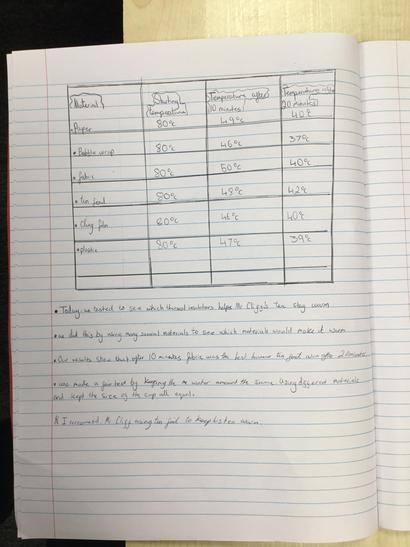 Material Starting temperature Temperature after 10 minutes Temperature after 20 minutes
• Paper 80°c 49°c 40°c
• Bubble wrap 80°c 46°c 37°c
• fabric 80°c 50°c 40°c
• tin foil 80°c 48°c 42°c
• Cling film 80°c 46°c 40°c
• plastic 80°c 47°c 39°c
• Today we tested to see which thermal insulators helps Mr Cliff's Tea stay warm
• we did this by using many several materials to see which materials would make it warm
• Our results show that after 10 minutes fabric was the best however tin foil won after 20 minutes
• we made a fair test by keeping the water amount the same. Using different materials
and kept the size of the cup all equal.
I recommend Mr Cliff using tin foil to keep his tea warm.